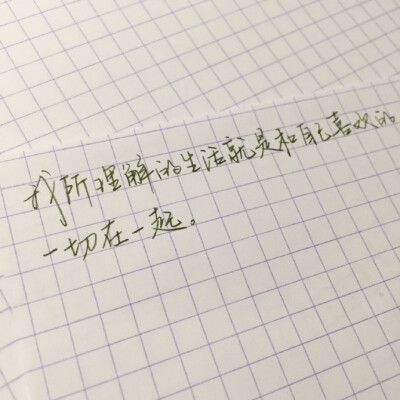 我所理解的生活就是和自己喜欢的
一切在一起。